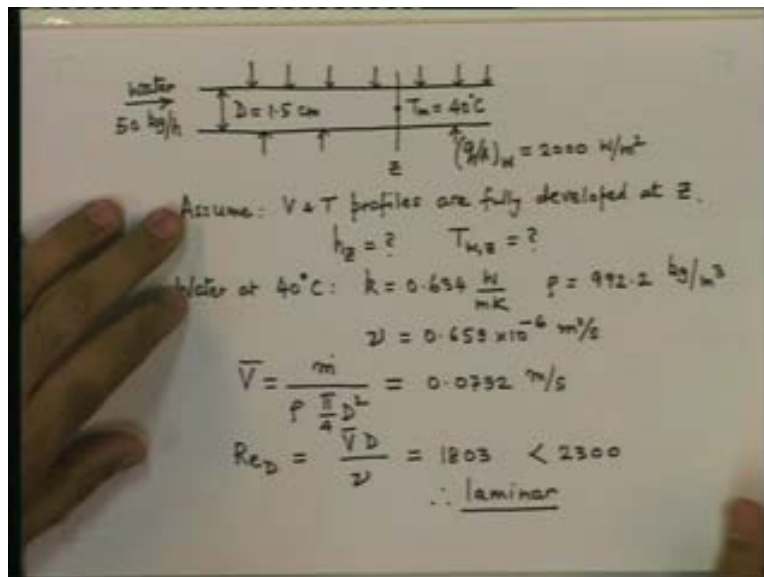 Water
50 kg/h
D = 1.5 cm
Tm = 40°C
z
(q/A)w = 2000 W/m²
Assume: V & T profiles are fully developed at z.
hz = ? Tw,z = ?
Water at 40°C: k = 0.634 W/mK ρ = 992.2 kg/m³
ν = 0.659 × 10⁻⁶ m²/s
V̄ = ṁ / (ρ π/4 D²) = 0.0792 m/s
ReD = V̄D/ν = 1803 < 2300
∴ laminar